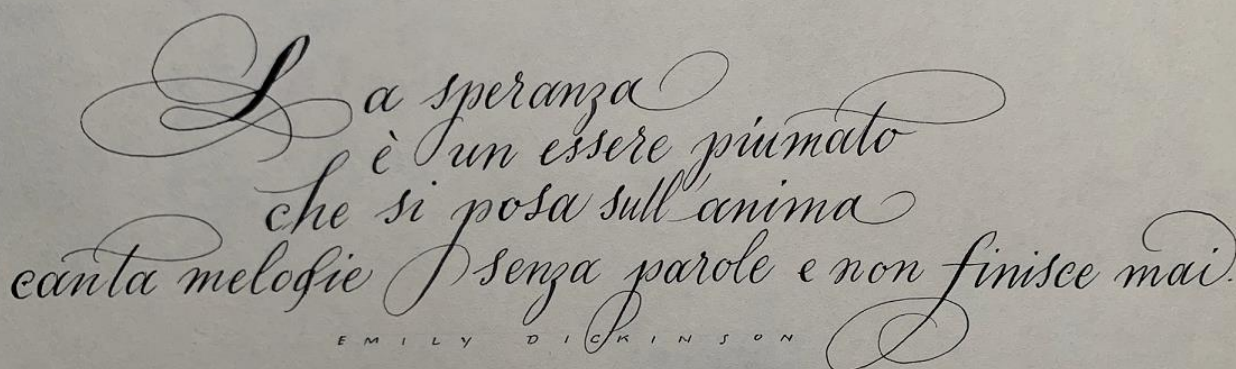 La speranza
è un essere piumato
che si posa sull'anima
canta melodie senza parole e non finisce mai.
EMILY DICKINSON